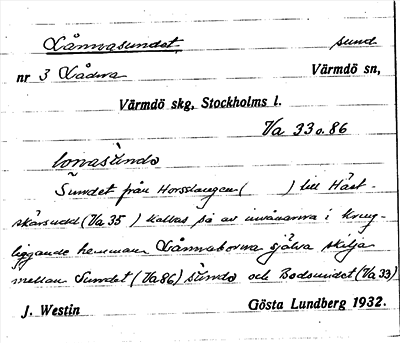 Lånnasundet sund
nr 3 Lådna Värmdö sn,
Värmdö skg, Stockholms l.
Va 33 o. 86
Sundet från Horsstangen ( ) till Häst-
skärsudd (Va 35 ) kallas så av invånarna i kring-
liggande hemman Lånnaborna själva skilja
mellan Sundet (Va 86) och Bodsundet (Va 33)
J. Westin Gösta Lundberg 1932.